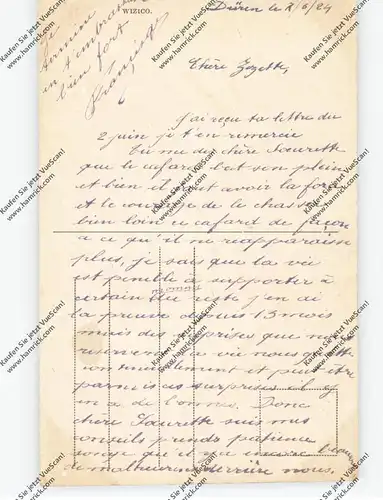 WIZICO.
Düren le 8/6/24
Je
termine
en t'embrassant
bien fort
Chère Zezette,
J'ai reçu ta lettre du
2 juin je t'en remercie
Tu me dis chère Saurette
que le cafard bat son plein
et bien il faut avoir la force
et le courage de le chasser
bien loin ce cafard de façon
a ce qu'il ne reapparaisse
plus, je sais que la vie
est penible a supporter à
certains moments
du reste j'en ai
la preuve depuis 13 mois
mais des surprises que nous
reservent la vie nous guette
continuellement et peut être
parmi ces surprises il y
en a de bonnes. Donc
chère Saurette suis mes
conseils prends patience
songe qu'il y a encore
de malheureux derrière nous.
Kaufen Sie jetzt VueScan!
(www.hamrick.com)